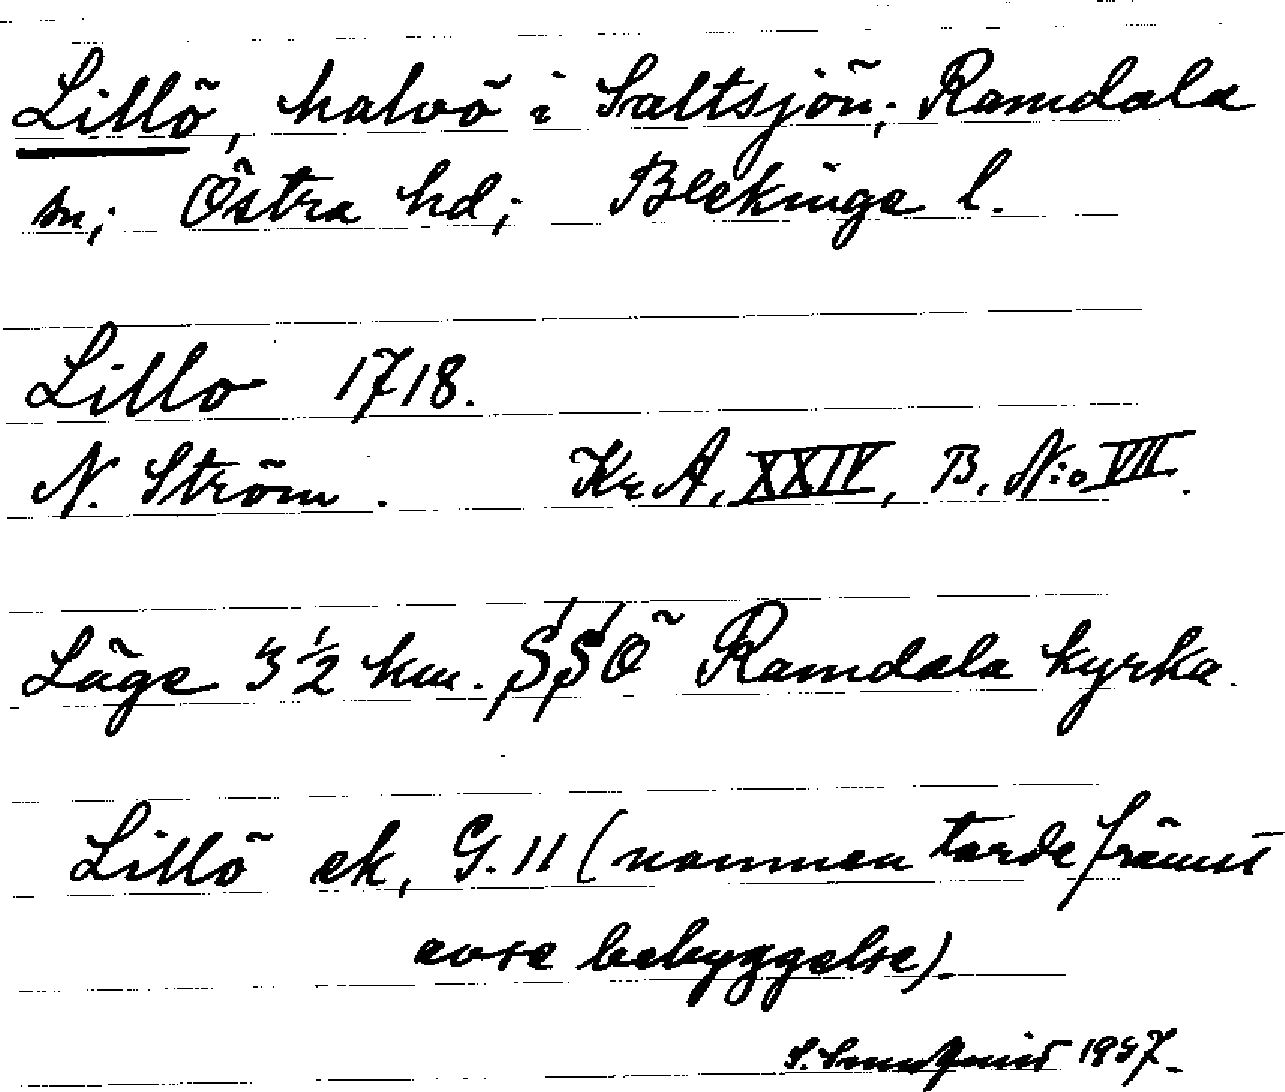 Lillö, halvö i Saltsjön; Ramdala
sn; Östra hd; Blekinge l.
Lillo 1718.
N. Ström. KrA, XXIV, B, N:o VII.
Läge 3 1/2 km. SSÖ Ramdala kyrka.
Lillö ek, G. 11 (namnen torde främst
avse bebyggelse).
S. 1957